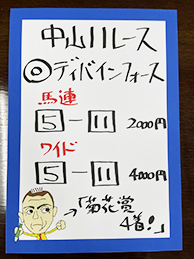 中山11レース
◎ディバインフォース
馬連
5-11 2000円
ワイド
5-11 4000円
「菊花賞
4着!」